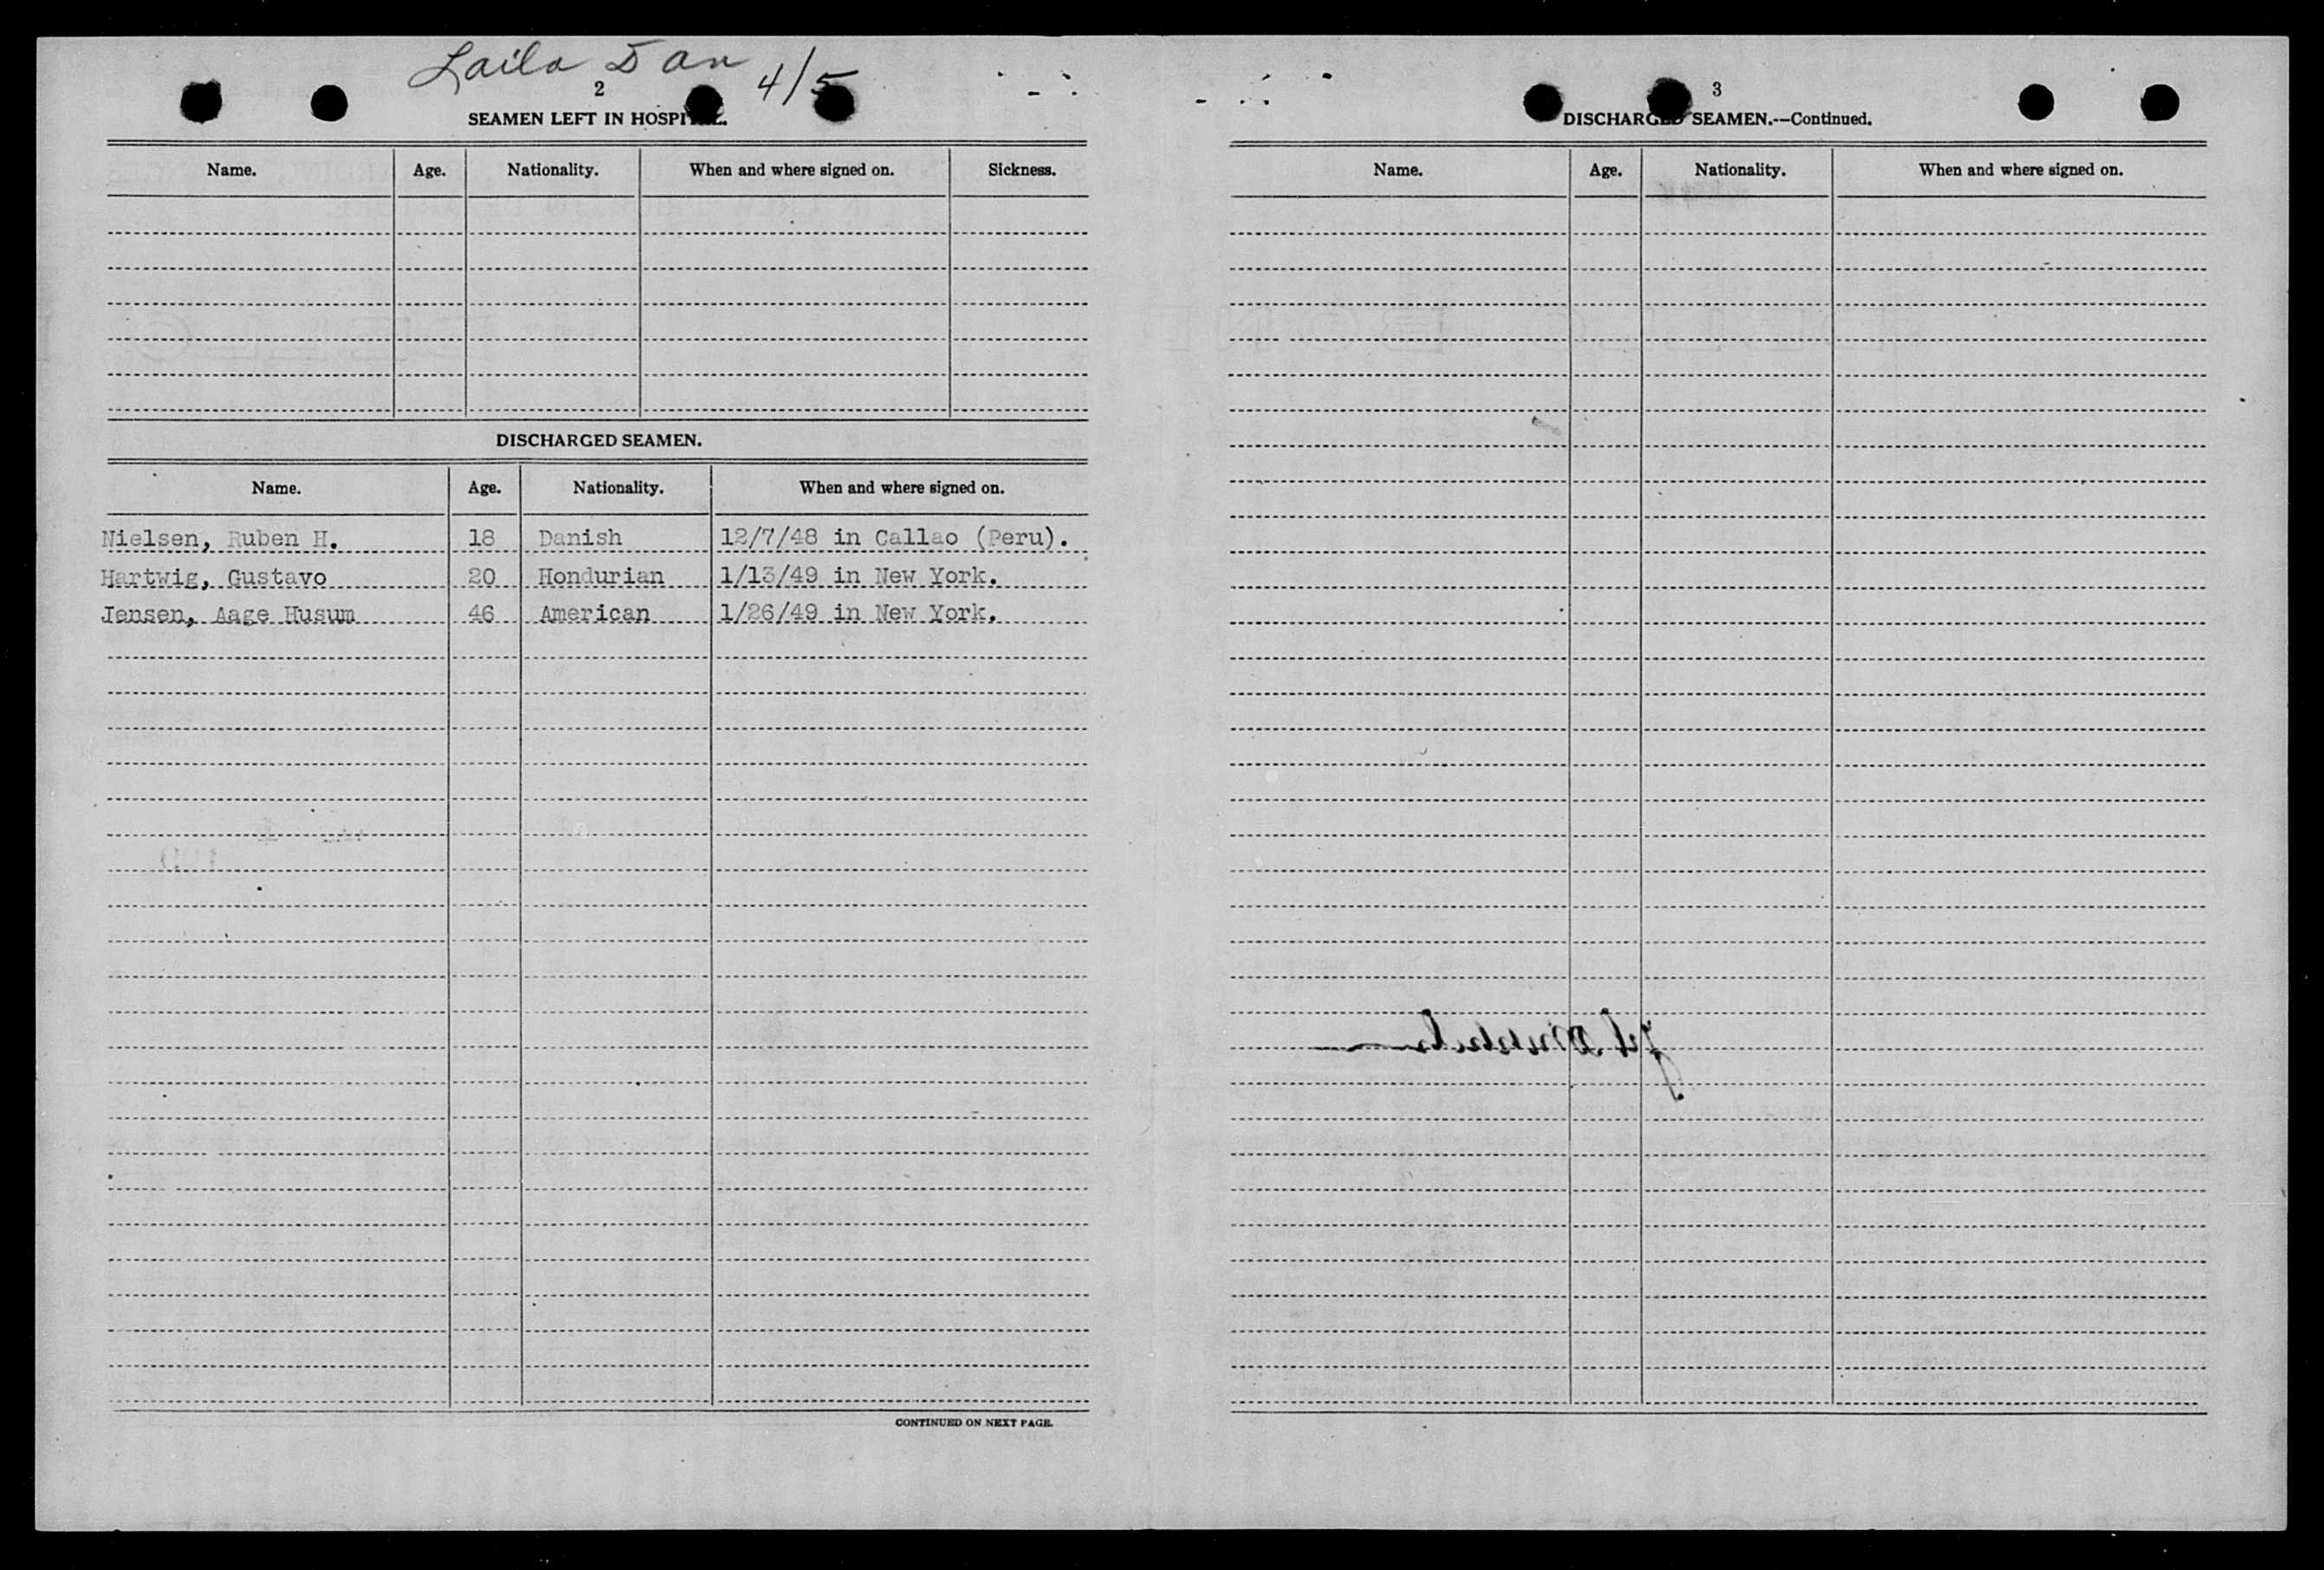 Laila Dan 4/5
2
SEAMEN LEFT IN HOSPITAL.
Name. Age. Nationality. When and where signed on. Sickness.
DISCHARGED SEAMEN.
Name. Age. Nationality. When and where signed on.
Nielsen, Ruben H. 18 Danish 12/7/48 in Callao (Peru).
Hartwig, Gustavo 20 Hondurian 1/13/49 in New York.
Jensen, Aage Husum 46 American 1/26/49 in New York.
CONTINUED ON NEXT PAGE.
3
DISCHARGED SEAMEN.--Continued.
Name. Age. Nationality. When and where signed on.